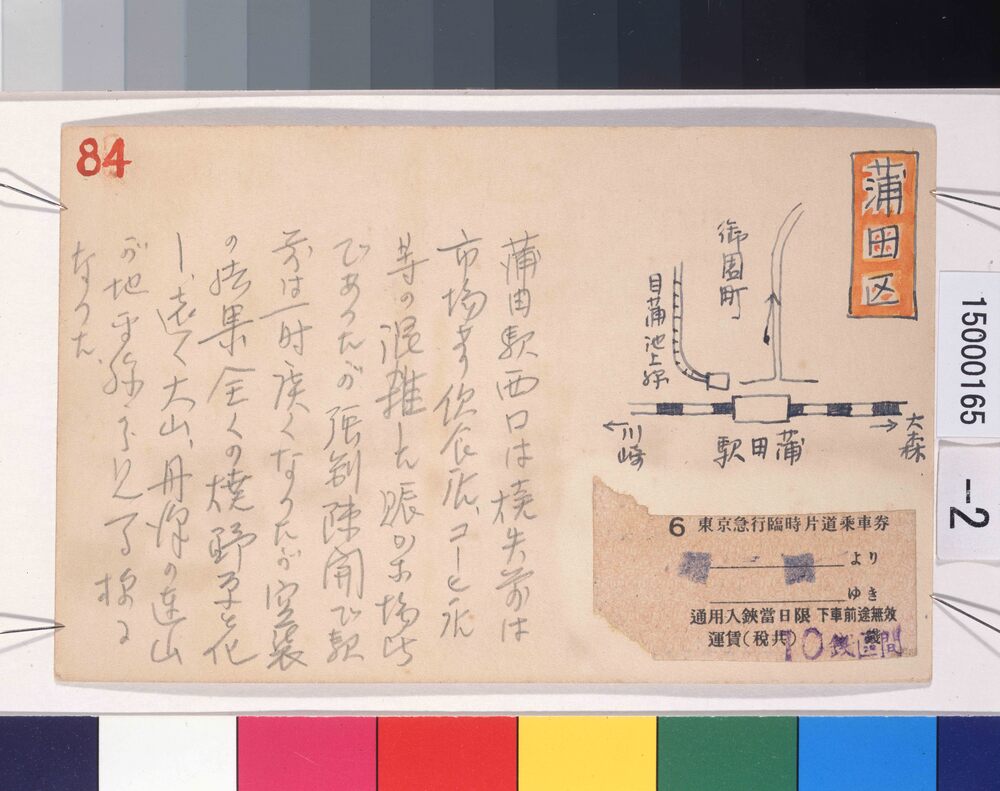 84
蒲田区
御園町
目蒲池上線
大森
蒲田駅
川崎
蒲田駅西口は焼失前は
市場や飲食店、コーヒ店
等の混雑した賑かな場所
であったが強制疎開で駅
前は一時広くなったが空襲
の結果全くの焼野原と化
し、遠く大山、丹沢の連山
が地平線に見る様に
なった、
6 東京急行臨時片道乗車券
より
ゆき
通用入鋏當日限 下車前途無効
運賃(税共)
10銭區間
15000165
-2